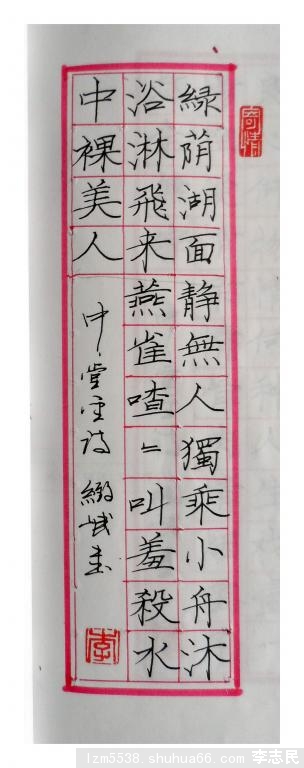 寄情
緑荫湖面静無人獨乘小舟沐
浴淋飛来燕雀喳〻叫羞殺水
中裸美人
李
lzm5538.shuhua66.com 李志民